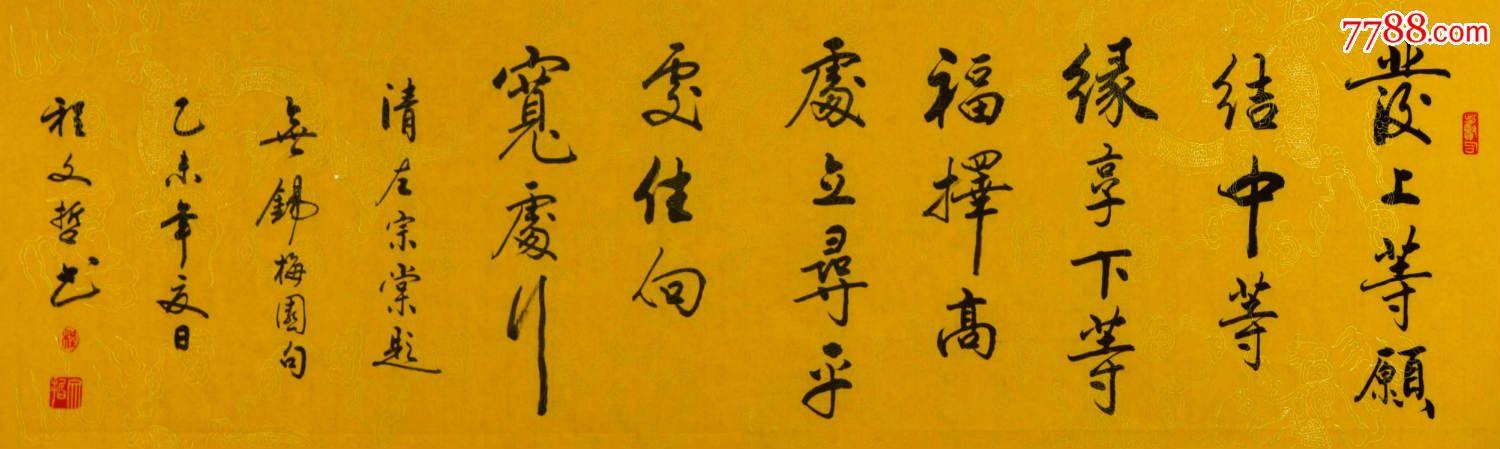 發上等願
結中等
緣享下等
福擇高
處立尋平
處住向
寬處行
清左宗棠題
無錫梅園句
乙未年夏日
程文哲书
7788.com